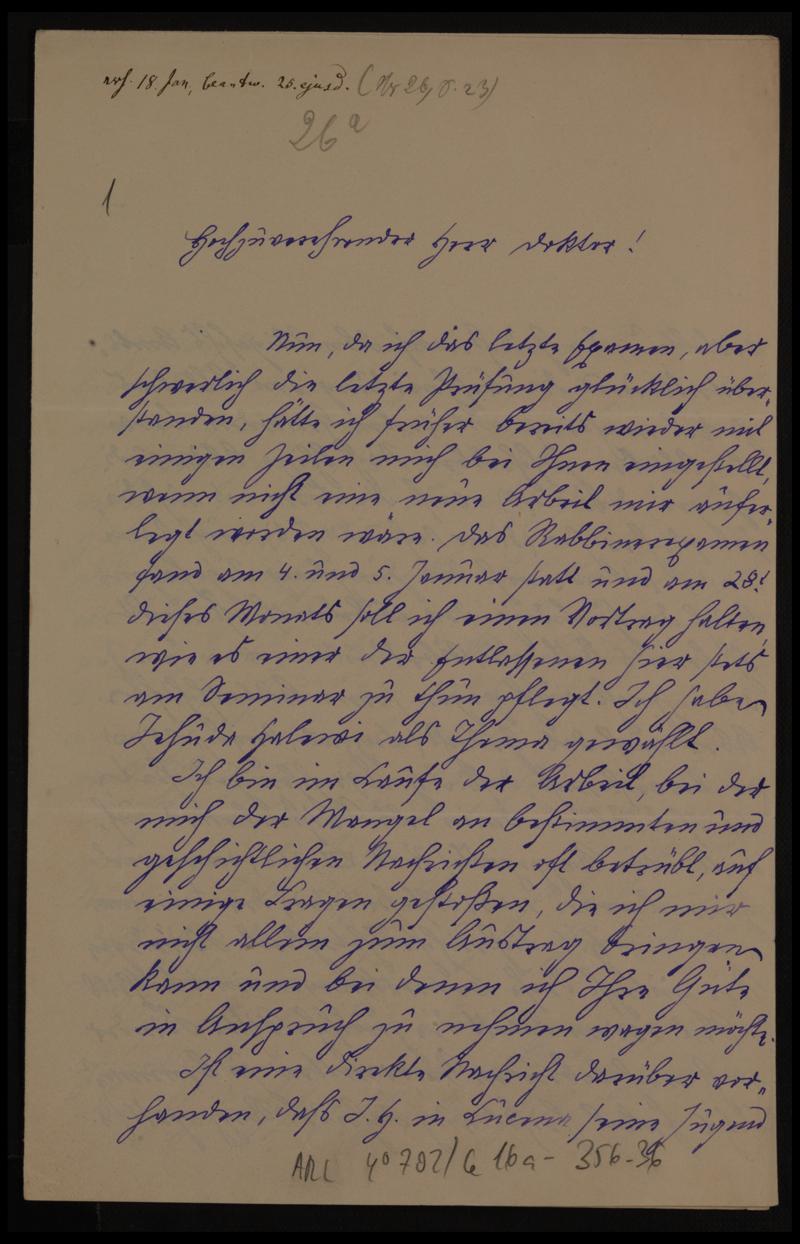 erh. 18. Jan, beantw. 25. ejusd. (Nr 26, S. 23)
26a
1
Hochzuverehrender Herr Doktor!
Nun, da ich das letzte Examen, aber
schwerlich die letzte Prüfung glücklich über-
standen, hätte ich früher bereits wieder mit
einigen Zeilen mich bei Ihnen eingestellt,
wenn nicht eine neue Arbeit mir aufer-
legt worden wäre. Das Rabbinerexamen
fand am 4. und 5. Januar statt und am 28t.
dieses Monats soll ich einen Vortrag halten,
wie es einer der Entlassenen hier stets
am Seminar zu thun pflegt. Ich habe
Jehuda Halewi als Thema gewählt.
Ich bin im Laufe der Arbeit, bei der
mich der Mangel an bestimmten und
geschichtlichen Nachrichten oft betrübt, auf
einige Fragen gestoßen, die ich mir
nicht allein zum Austrag bringen
kann und bei denen ich Ihre Güte
in Anspruch zu nehmen wagen möchte.
Ist eine direkte Nachricht darüber vor-
handen, daß J. H. in Lucena seine Jugend
ARC 4° 792/G 16a - 356-36